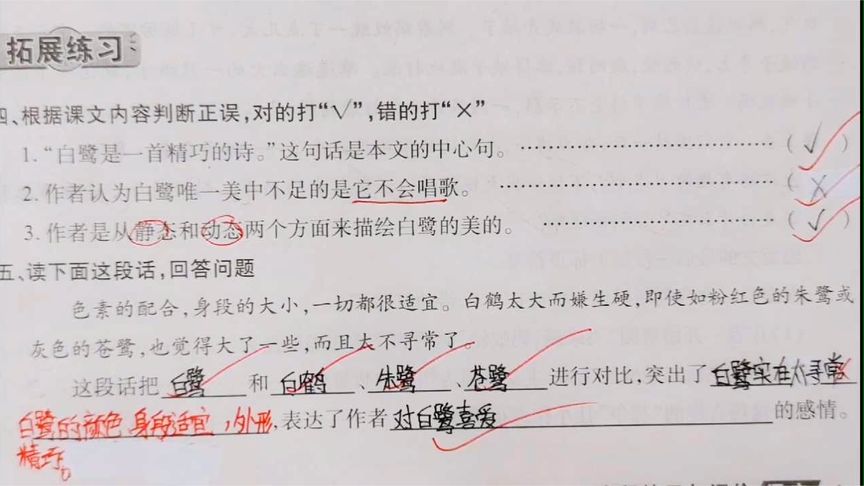 拓展练习
四、根据课文内容判断正误,对的打“√”,错的打“×”
1.“白鹭是一首精巧的诗。”这句话是本文的中心句。 ……………………( √ )
2.作者认为白鹭唯一美中不足的是它不会唱歌。 ……………………( X )
3.作者是从静态和动态两个方面来描绘白鹭的美的。 ……………………( √ )
五、读下面这段话,回答问题
色素的配合,身段的大小,一切都很适宜。白鹤太大而嫌生硬,即使如粉红色的朱鹭或
灰色的苍鹭,也觉得大了一些,而且太不寻常了。
这段话把 白鹭 和 白鹤 、朱鹭 、苍鹭 进行对比,突出了 白鹭实在太寻常
白鹭的颜色,身段适宜,外形 ,表达了作者 对白鹭喜爱 的感情。
精巧。